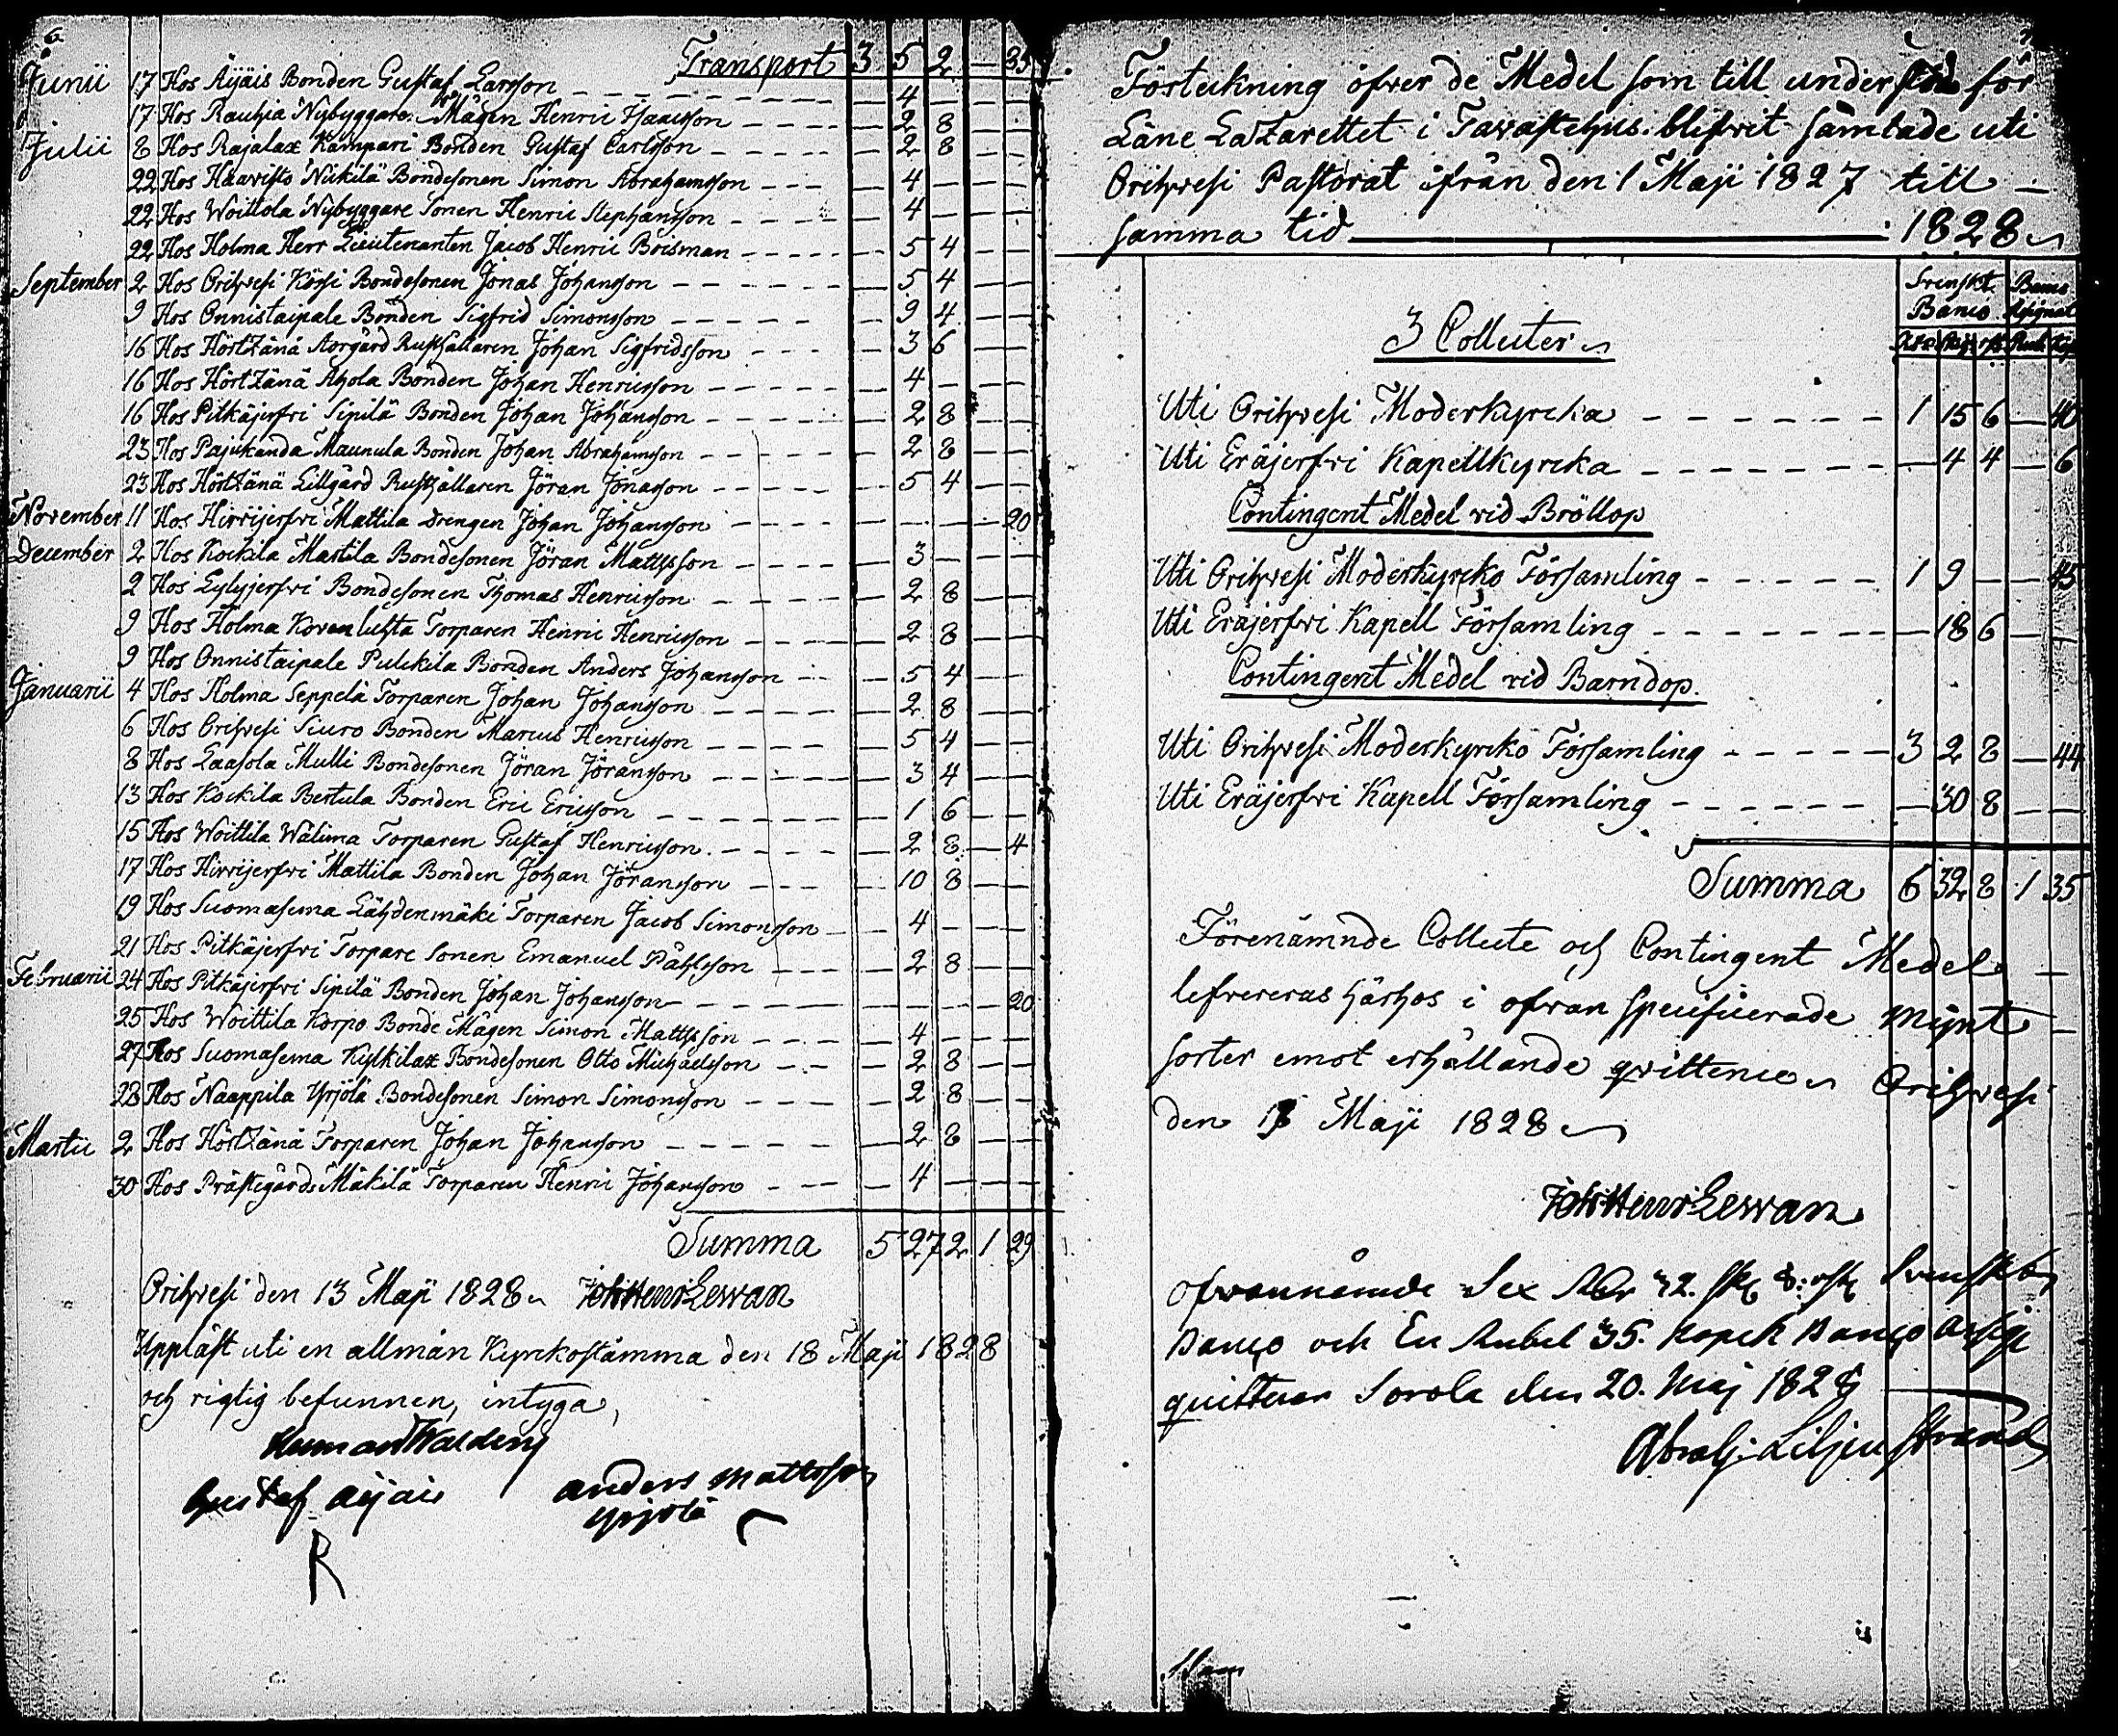 6
Transport 3 5 2 — 35
Junii 17 Hos Äijäis Bonden Gustaf Larsson — 4 — — —
17 Hos Rauhia Nybyggare Mågen Henric Isaacsson — 2 8 — —
Julii 8 Hos Rajalax Kämpari Bonden Gustaf Carlsson — 2 8 — —
22 Hos Haavisto Nickilä Bondesonen Simon Abrahamsson — 4 — — —
22 Hos Woittola Nybyggare Sonen Henric Stephansson — 4 — — —
22 Hos Holma Herr Lieutenanten Jacob Henric Boisman — 5 4 — —
September 2 Hos Orihvesi Körsi Bondesonen Jonas Johansson — 5 4 — —
9 Hos Onnistaipale Bonden Sigfrid Simonsson — 9 4 — —
16 Hos Hörtzänä Norgård Rusthållaren Johan Sigfridsson — 3 6 — —
16 Hos Hörtzänä Ahola Bonden Johan Henricsson — 4 — — —
16 Hos Pitkäjerfvi Sipilä Bonden Johan Johansson — 2 8 — —
23 Hos Pajukanda Maunula Bonden Johan Abrahamsson — 2 8 — —
23 Hos Hörtzänä Lillgård Rusthållaren Jöran Jönasson — 5 4 — —
November 11 Hos Hirvijerfvi Mattila Drengen Johan Johansson — — — — 20
December 2 Hos Kockila Martila Bondesonen Jöran Mattsson — 3 — — —
2 Hos Lylyjerfvi Bondesonen Thomas Henricsson — 2 8 — —
9 Hos Holma Kovanluhta Torparen Henric Henricsson — 2 8 — —
9 Hos Onnistaipale Pulckila Bonden Anders Johansson — 5 4 — —
Januarii 4 Hos Holma Seppelä Torparen Johan Johansson — 2 8 — —
6 Hos Orihvesi Siuro Bonden Marcus Henricsson — 5 4 — —
8 Hos Laasola Mulli Bondesonen Jöran Jöransson — 3 4 — —
13 Hos Kockila Bertula Bonden Eric Ericsson — 1 6 — —
15 Hos Woittila Wälima Torparen Gustaf Henricsson — 2 8 — 4
17 Hos Hirvijerfvi Mattila Bonden Johan Jöransson — 10 8 — —
19 Hos Suomasema Lähdenmäki Torparen Jacob Simonsson — 4 — — —
21 Hos Pitkäjerfvi Torpare Sonen Emanuel Påhlsson — 2 8 — —
Februarii 24 Hos Pitkäjerfvi Sipilä Bonden Johan Johansson — — — — 20
25 Hos Woittila Korpo Bonde Mågen Simon Mattsson — 4 — — —
27 Hos Suomasema Kylkilax Bondesonen Otto Michaelsson — 2 8 — —
28 Hos Naappila Yrjölä Bondesonen Simon Simonsson — 2 8 — —
Martii 2 Hos Hörtzänä Torparen Johan Johansson — 2 8 — —
30 Hos Prästegårds Mäkilä Torparen Henric Johansson — 4 — — —
Summa 5 27 2 1 29
Orihvesi den 13 Maji 1828 Joh: Henr: Lewan
Uppläst uti en allmän Kyrkostämma den 18 Maji 1828
och rigtig befunnen, intyga,
Herman Walden
Gustaf Äijäis Anders Mattsson
Yrjölä
R
Förteckning öfver de Medel som till understöd för
Läne Lazarettet i Tavastehus blifvit samlade uti
Orihvesi Pastorat ifrån den 1 Maji 1827 till —
samma tid — 1828
Svenskt Banco
Banco Assignat
R:dr Sk: rst: Rub: Kop:
3 Collecter
Uti Orihvesi Moderkyrcka — 1 15 6 — 40
Uti Eräjerfvi Kapellkyrcka — — 4 4 — 6
Contingent Medel vid Bröllop
Uti Orihvesi Moderkyrcko Församling — 1 9 — — 45
Uti Eräjerfvi Kapell Församling — — 18 6 — —
Contingent Medel vid Barndop.
Uti Orihvesi Moderkyrcko Församling — 3 2 8 — 44
Uti Eräjerfvi Kapell Församling — — 30 8 — —
Summa 6 32 8 1 35
Förenämnde Collecte och Contingent Medel —
lefvereras härhos i ofvan specificerade Mynt —
sorter emot erhållande qvittence Orihvesi
den 13 Maji 1828
Joh: Henr: Lewan
Ofvannämde Sex Rdr 32. sk 8: rst Svenskt
Banco och En Rubel 35. Kopek Banco Assig:
quitteras Sorola den 20. Maj 1828
Abrah: Liljenstrand